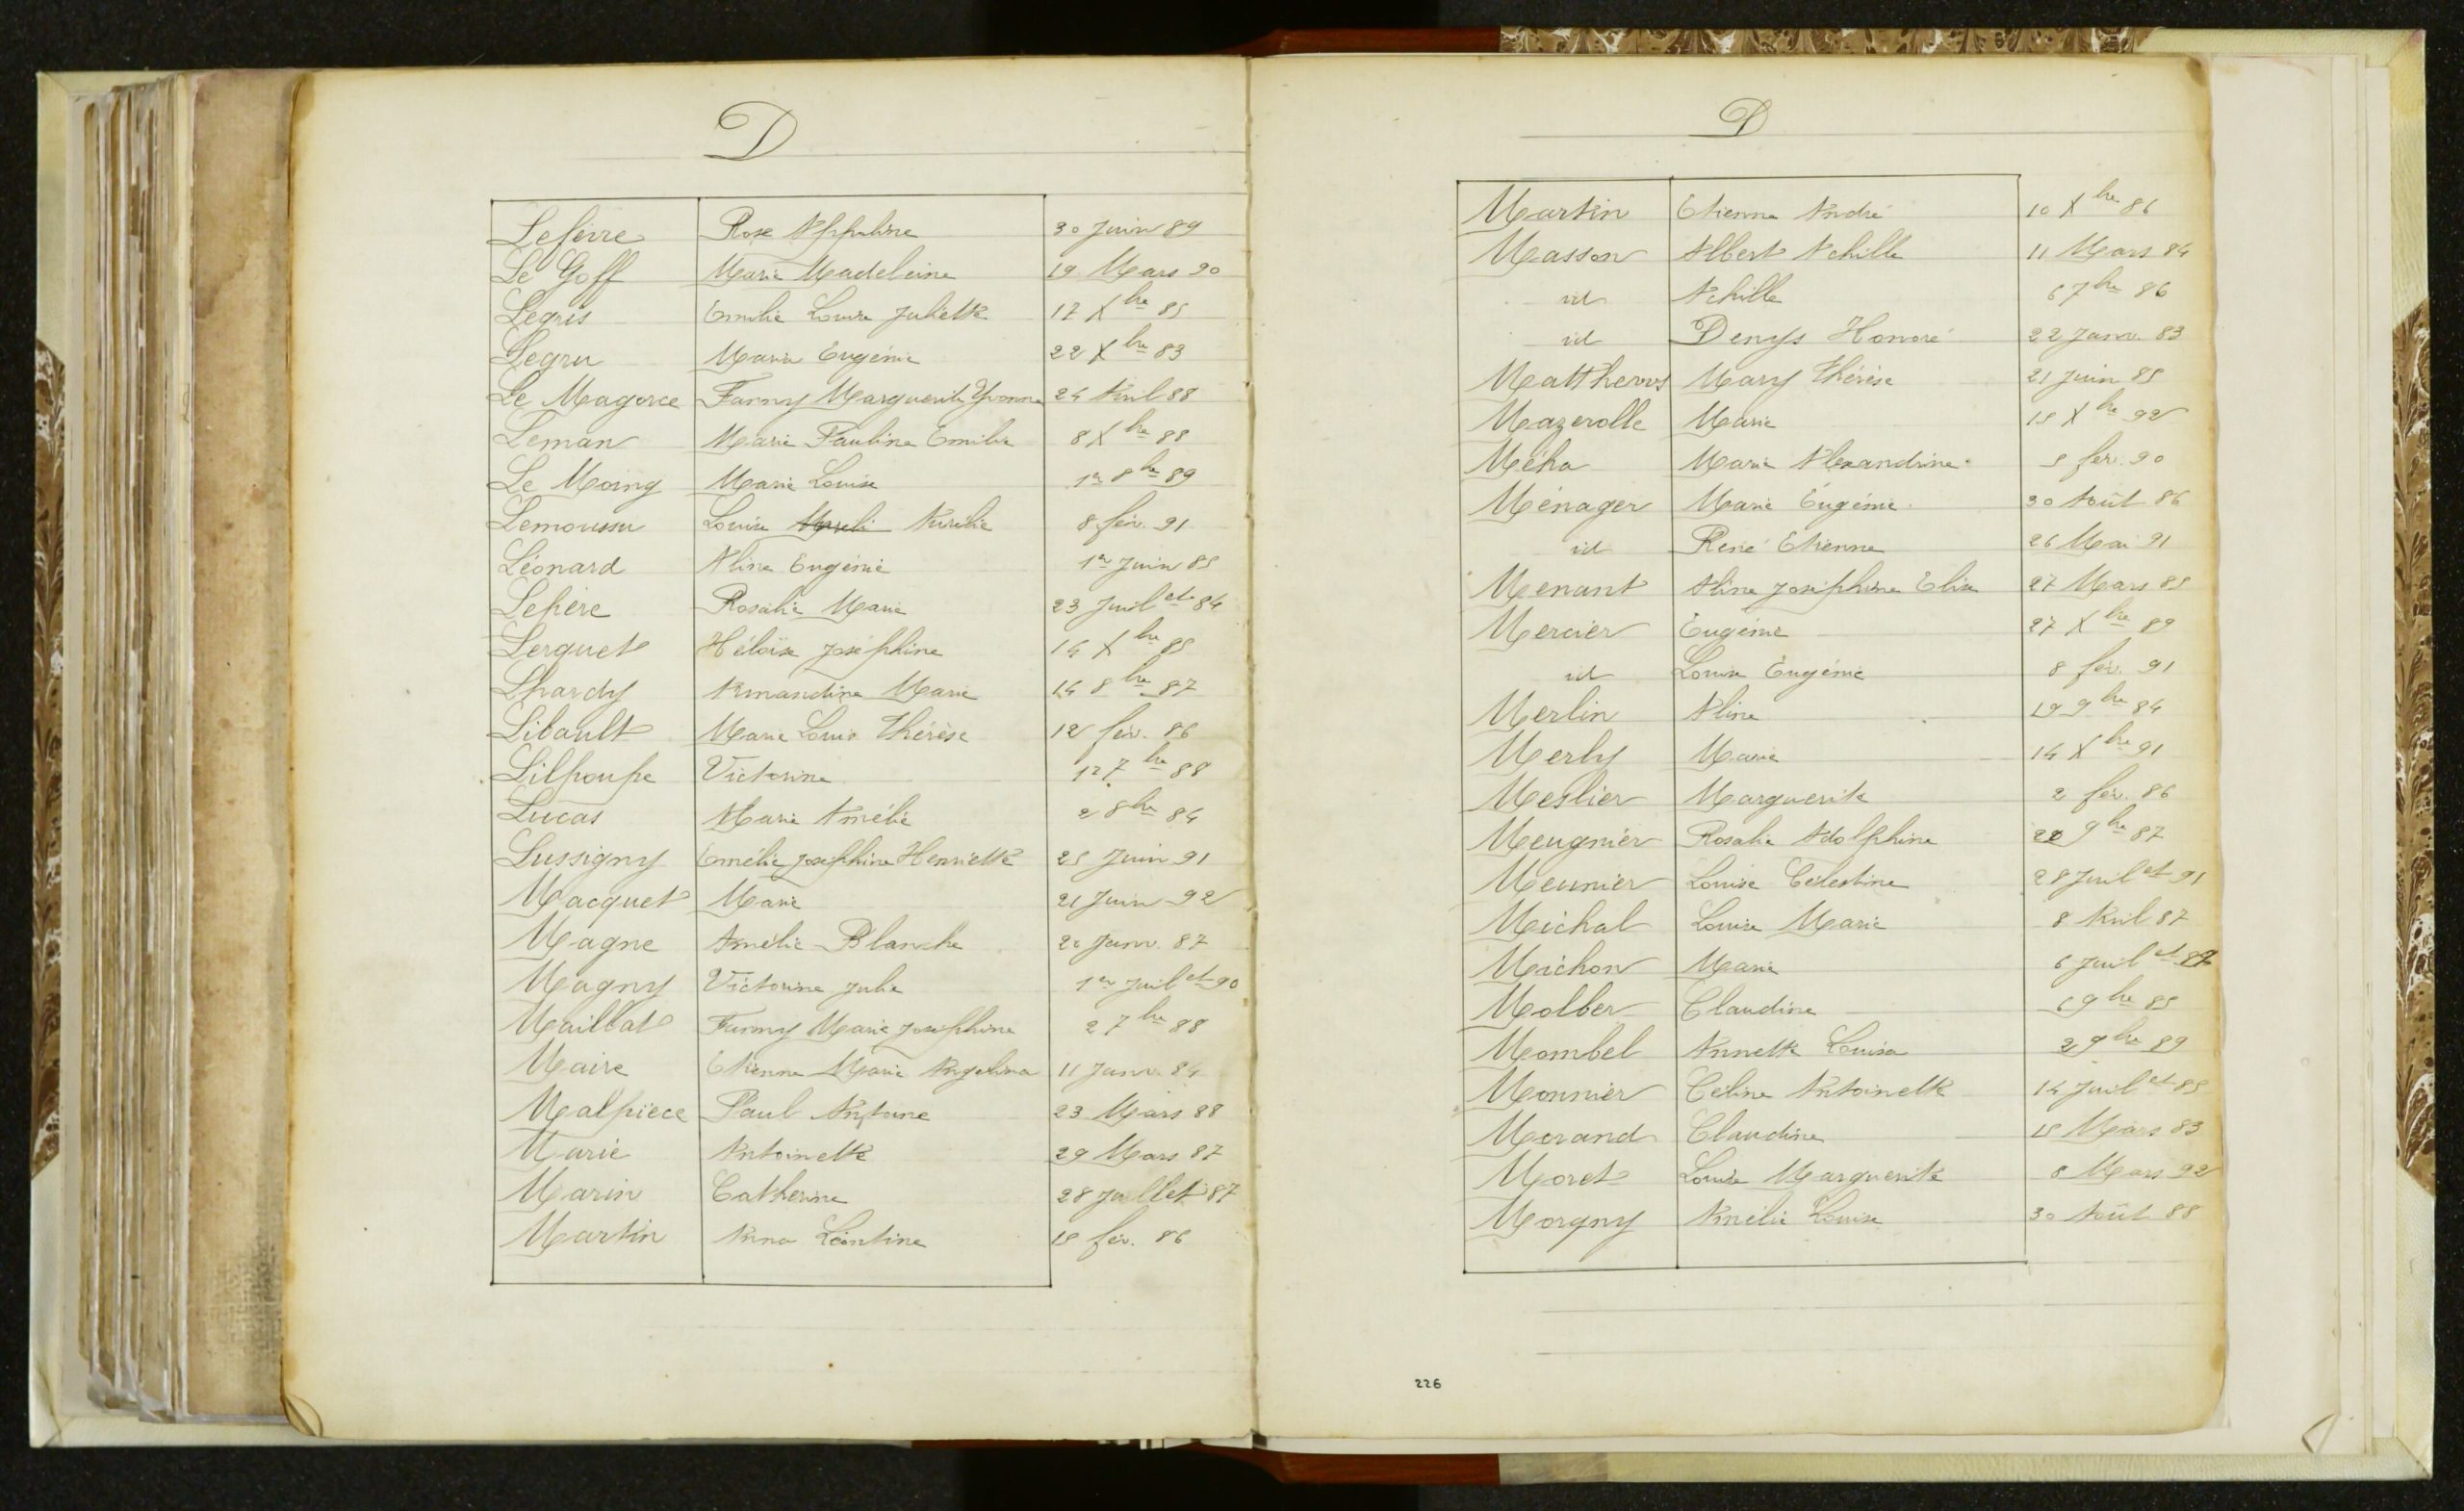 D
Lefèvre Rose Appoline 30 Juin 89
Le Goff Marie Madeleine 19 Mars 90
Legris Emilie Louise Juliette 17 Xbre 85
Legru Marie Eugénie 22 Xbre 83
Le Magorce Fanny Marguerite Yvonne 24 Avril 88
Leman Marie Pauline Emilie 8 Xbre 88
Le Moing Marie Louise 1er 8bre 89
Lemoussu Louise Aurélie 8 fév. 91
Léonard Aline Eugénie 1er Juin 85
Lepère Rosalie Marie 23 Juillet 84
Lerquet Héloïse Joséphine 14 Xbre 85
Lhardy Amandine Marie 14 8bre 87
Libault Marie Louise Thérèse 12 fév. 86
Lilpoupe Victorine 12 7bre 88
Lucas Marie Amélie 2 8bre 84
Lussigny Emélie Joséphine Henriette 25 Juin 91
Macquet Marie 21 Juin 92
Magne Amélie Blanche 20 Janv. 87
Magny Victorine Julie 1er Juillet 90
Maillat Fanny Marie Joséphine 2 7bre 88
Maire Etienne Marie Angelina 11 Janv. 84
Malpièce Paul Antoine 23 Mars 88
Marie Antoinette 29 Mars 87
Marin Catherine 28 Juillet 87
Martin Anna Léontine 15 fév. 86
D
Martin Etienne André 10 Xbre 86
Masson Albert Achille 11 Mars 84
id Achille 6 7bre 86
id Denys Honoré 22 Janv. 83
Matthews Mary Thérèse 21 Juin 85
Mazerolle Marie 15 Xbre 92
Méha Marie Alexandrine 5 fév. 90
Ménager Marie Eugénie 30 Août 86
id René Etienne 26 Mai 91
Menant Aline Joséphine Elisa 27 Mars 85
Mercier Eugénie 27 Xbre 89
id Louise Eugénie 8 fév. 91
Merlin Aline 19 9bre 84
Merly Marie 14 Xbre 91
Meslier Marguerite 2 fév. 86
Meugnier Rosalie Adolphine 9bre 87
Meunier Louise Célestine 28 Juillet 91
Michal Louise Marie 8 Avril 87
Michon Marie 6 Juillet 87
Molber Claudine 6 9bre 85
Mombel Annette Louisa 2 9bre 89
Monnier Céline Antoinette 14 Juillet 85
Morand Claudine 15 Mars 83
Moret Louise Marguerite 8 Mars 92
Morgny Amélie Louise 30 Août 88
226